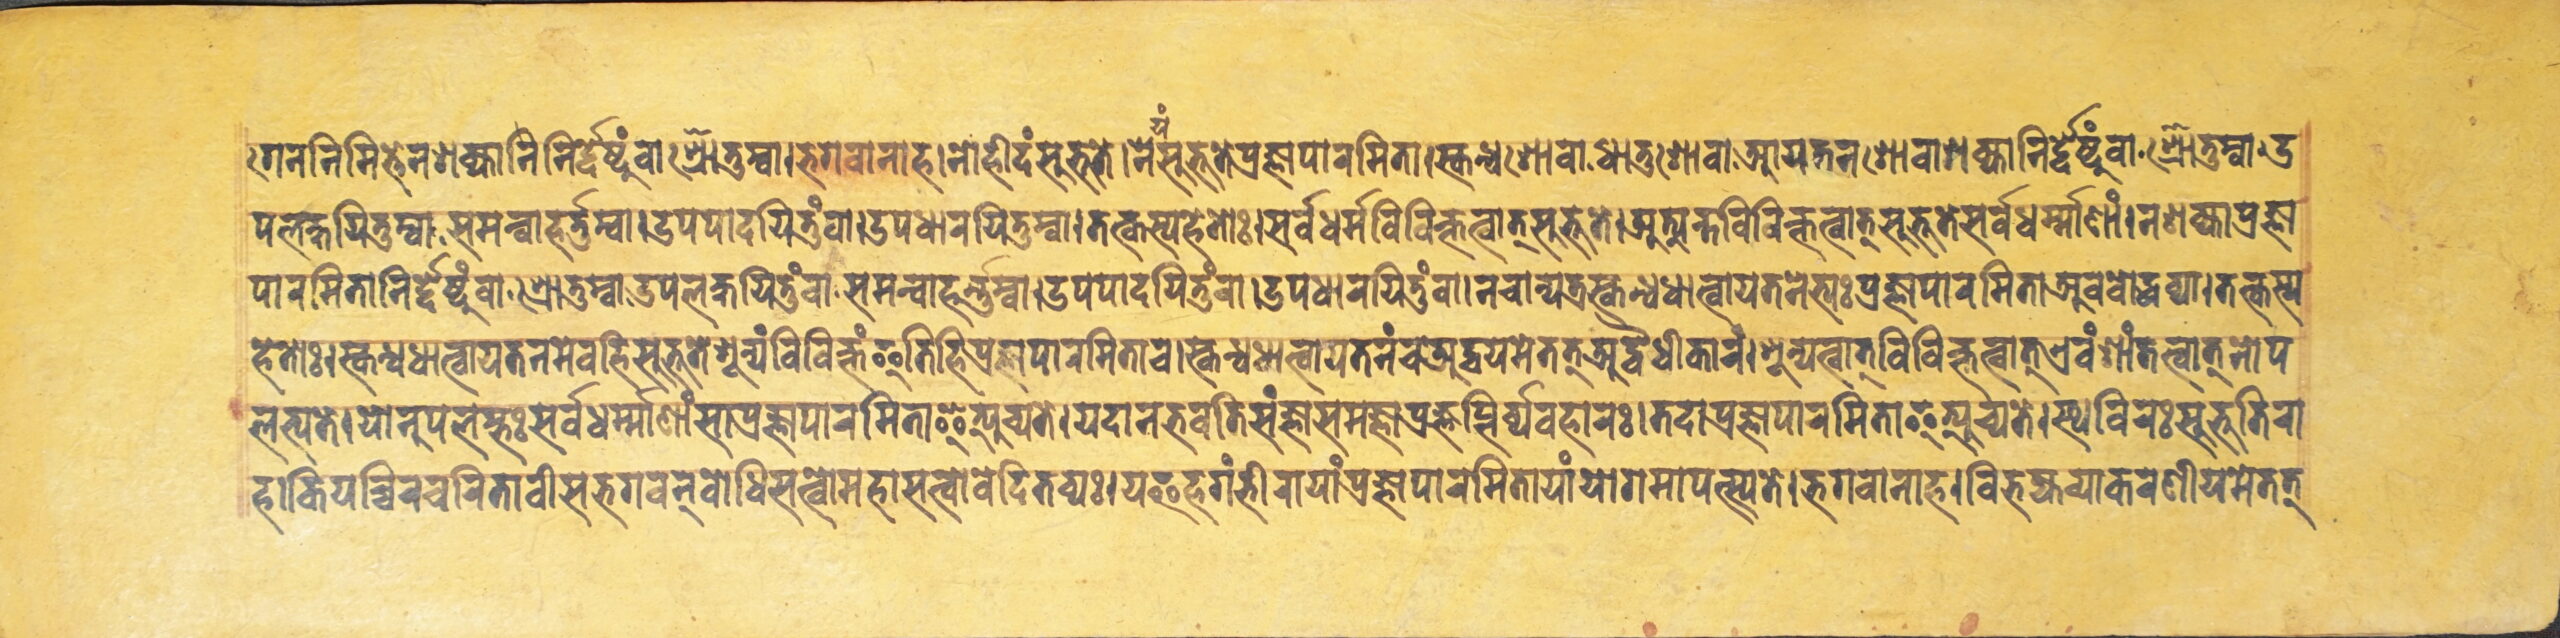 गेन निमित्तेन शक्या निनिर्द्देष्टुं वा श्रोतुम्वा। भगवानाह। नो हीदं सुभूते। नेयं सुभूते प्रज्ञापारमिता। स्कन्धशो वा धातुशो वा आयतनशो वा शक्या निर्द्देष्टुं वा श्रोतुम्वा। उ
पलक्षयितुम्वा समन्वाहर्त्तुम्वा। उपपादयितुं वा। उपधारयितुम्वा। तत्कस्य हेतोः। सर्वधर्मविविक्तत्वात् सुभूते। अत्यन्तविविक्तत्वात् सुभूते सर्वधर्म्माणां। न शक्या प्रज्ञा
पारमिता निर्द्देष्टुं वा श्रोतुम्वा उपलक्षयितुं वा समन्वाहर्त्तुम्वा। उपपादयितुं वा। उपधारयितुं वा। न चान्यत्र स्कन्धधात्वायतनेभ्यः प्रज्ञापारमिता अवबोद्धव्या। तत्कस्य
हेतोः। स्कन्धधात्वायतनमेव हि सुभूते शून्यं विविक्तं इति हि प्रज्ञापारमिता च। स्कन्धधात्वायतनं च अद्वयमेतत् अद्वैधीकारं। शून्यत्वात् विविक्तत्वात् एवं शांतत्वात् नोप
लभ्यते। योनुपलम्भः सर्वधर्म्माणां सा प्रज्ञापारमिता इत्युच्यते। यदा न भवति संज्ञा समज्ञा प्रज्ञप्तिर्व्यवहारः। तदा प्रज्ञापारमिता इत्युच्यते। स्थविरः सुभूतिरा
ह। कियच्चिरचरितावी स भगवन् बोधिसत्त्वो महासत्त्वो वेदितव्यः। य इह गंभीरायां प्रज्ञापारमितायां योगमापत्स्यते। भगवानाह। विभज्य व्याकरणीयमेतत्